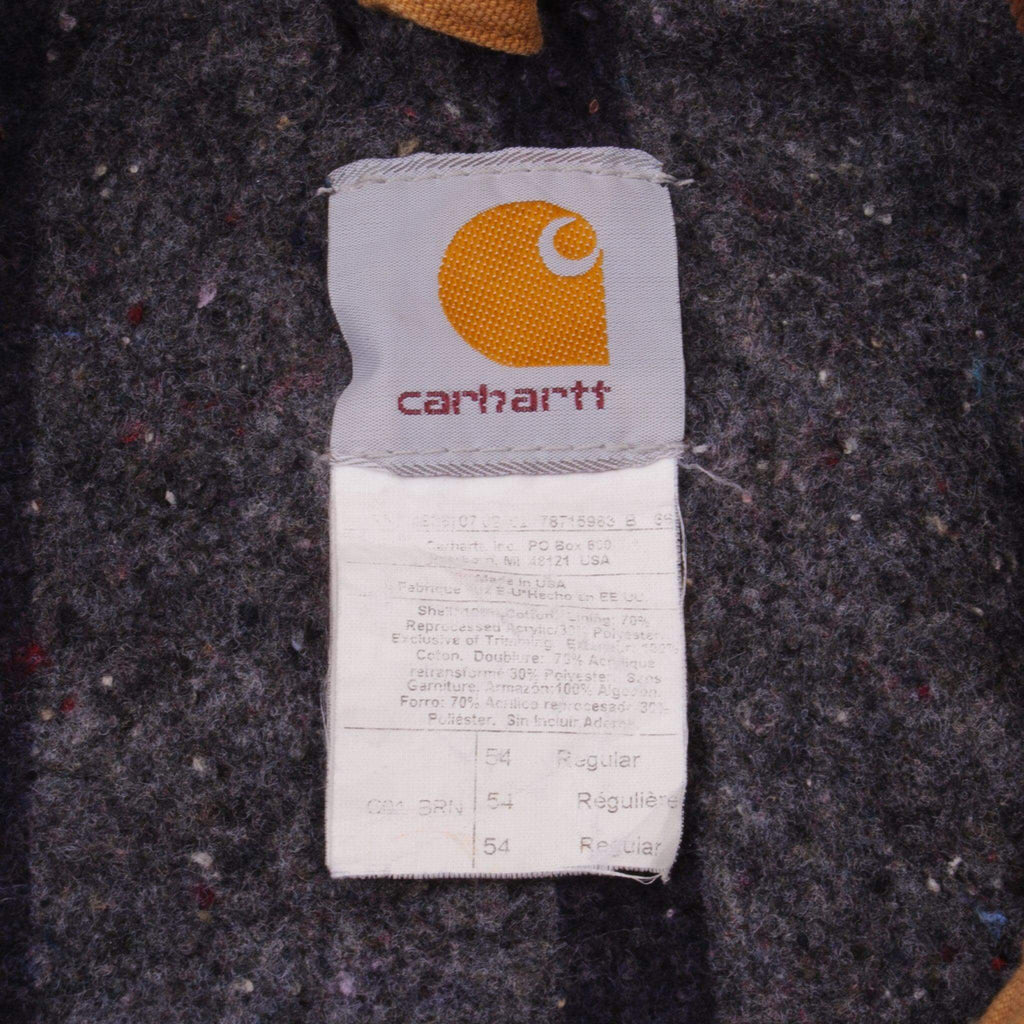 carhartt
07 78715983 B
Carhartt, Inc. PO Box 600
MI 48121 USA
Made in USA
Fabrique E-U*Hecho en EE UU
Shell: 100% Cotton. Lining: 70%
Reprocessed Acrylic/30% Polyester.
Exclusive of Trimming. 100%
Coton. Doublure: 70% Acrylique
retransformé 30% Polyester. Sans
Garniture. Armazón:100% Algodón.
Forro: 70% Acrilico reprocesado 30%
Poliéster. Sin Incluir
54 Regular
BRN 54 Régulière
54 Regular